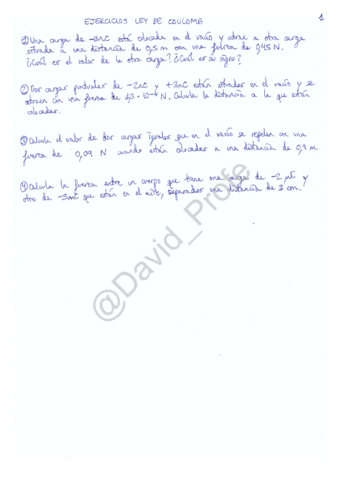 EJERCICIOS LEY DE COULOMB
1
① Una carga de -3nC está colocada en el vacío y atrae a otra carga
situada a una distancia de 0,5 m con una fuerza de 0,45 N.
¿Cuál es el valor de la otra carga? ¿Cuál es su signo?
② Dos cargas puntuales de -2nC y +3nC están situadas en el vacío y se
atraen con una fuerza de N. Calcula la distancia a la que están
colocadas.
③ Calcula el valor de dos cargas iguales que en el vacío se repelen con una
fuerza de 0,09 N cuando están colocadas a una distancia de m.
④ Calcula la fuerza entre un cuerpo que tiene una carga de -2 μC y
otro de que están en el aire, separados una distancia de 3 cm.
@David_Profe